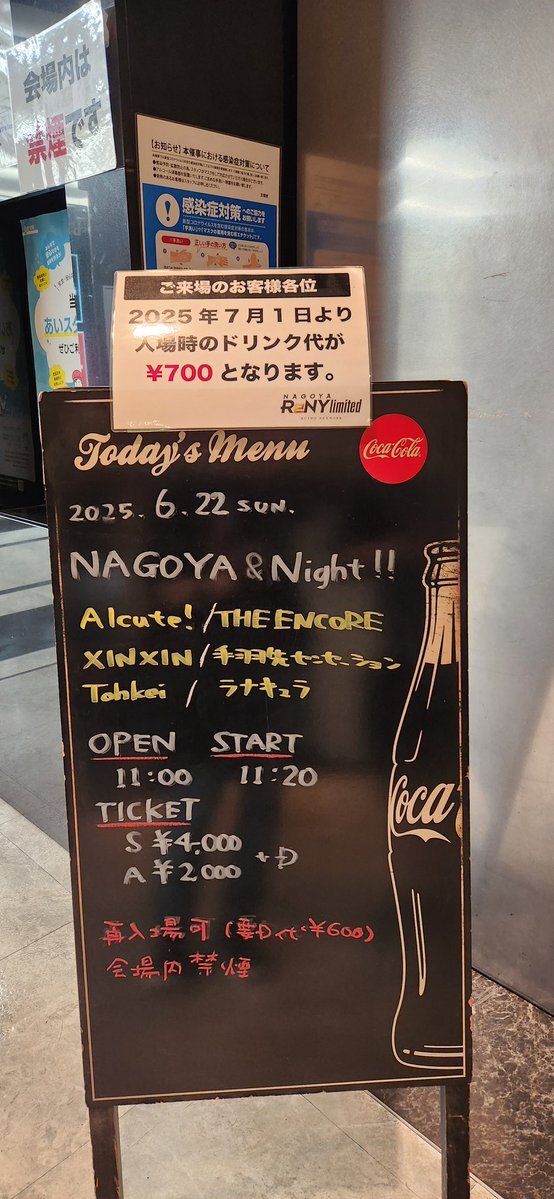 会場内は
禁煙です
【お知らせ】本催事における感染症対策について
感染症対策 へのご協力を
お願いします
正しい手の洗い方
ご来場のお客様各位
2025年7月1日より
入場時のドリンク代が
¥700となります。
NAGOYA
RENY limited
Today's Menu
Coca-Cola
2025. 6.22 SUN.
NAGOYA & Night!!
Alcute! / THE ENCORE
XINXIN / 手羽先センセーション
Tohkei / ラナキュラ
OPEN START
11:00 11:20
TICKET
S ¥4,000
A ¥2,000 +D
再入場可 (要D代¥600)
会場内禁煙
Coca